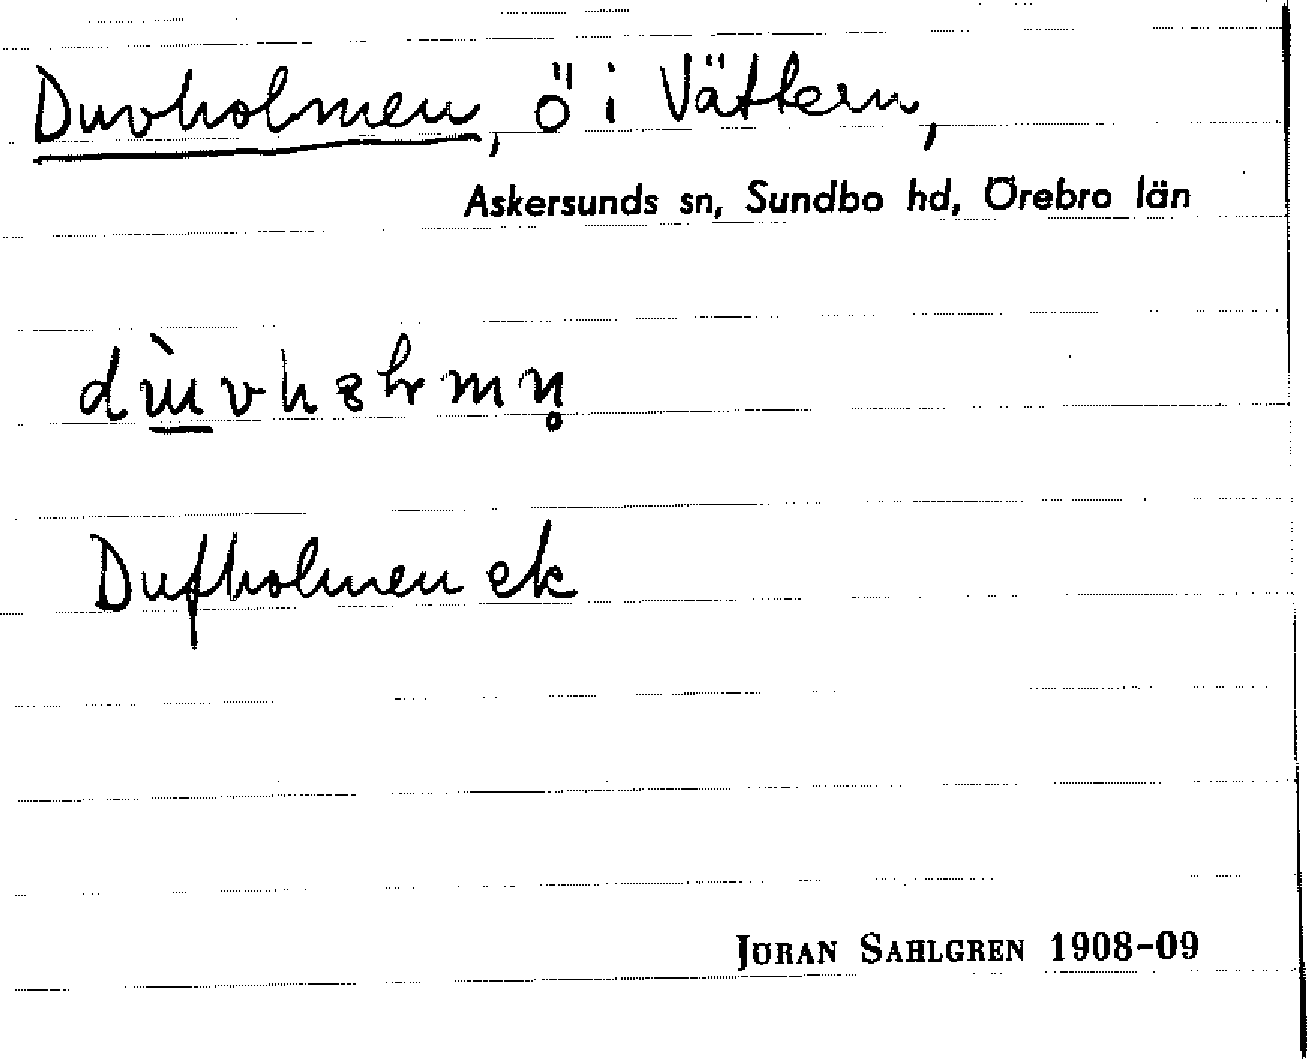 Duvholmen, ö i Vättern,
Askersunds sn, Sundbo hd, Örebro län
Dufholmen ek
JÖRAN SAHLGREN 1908-09